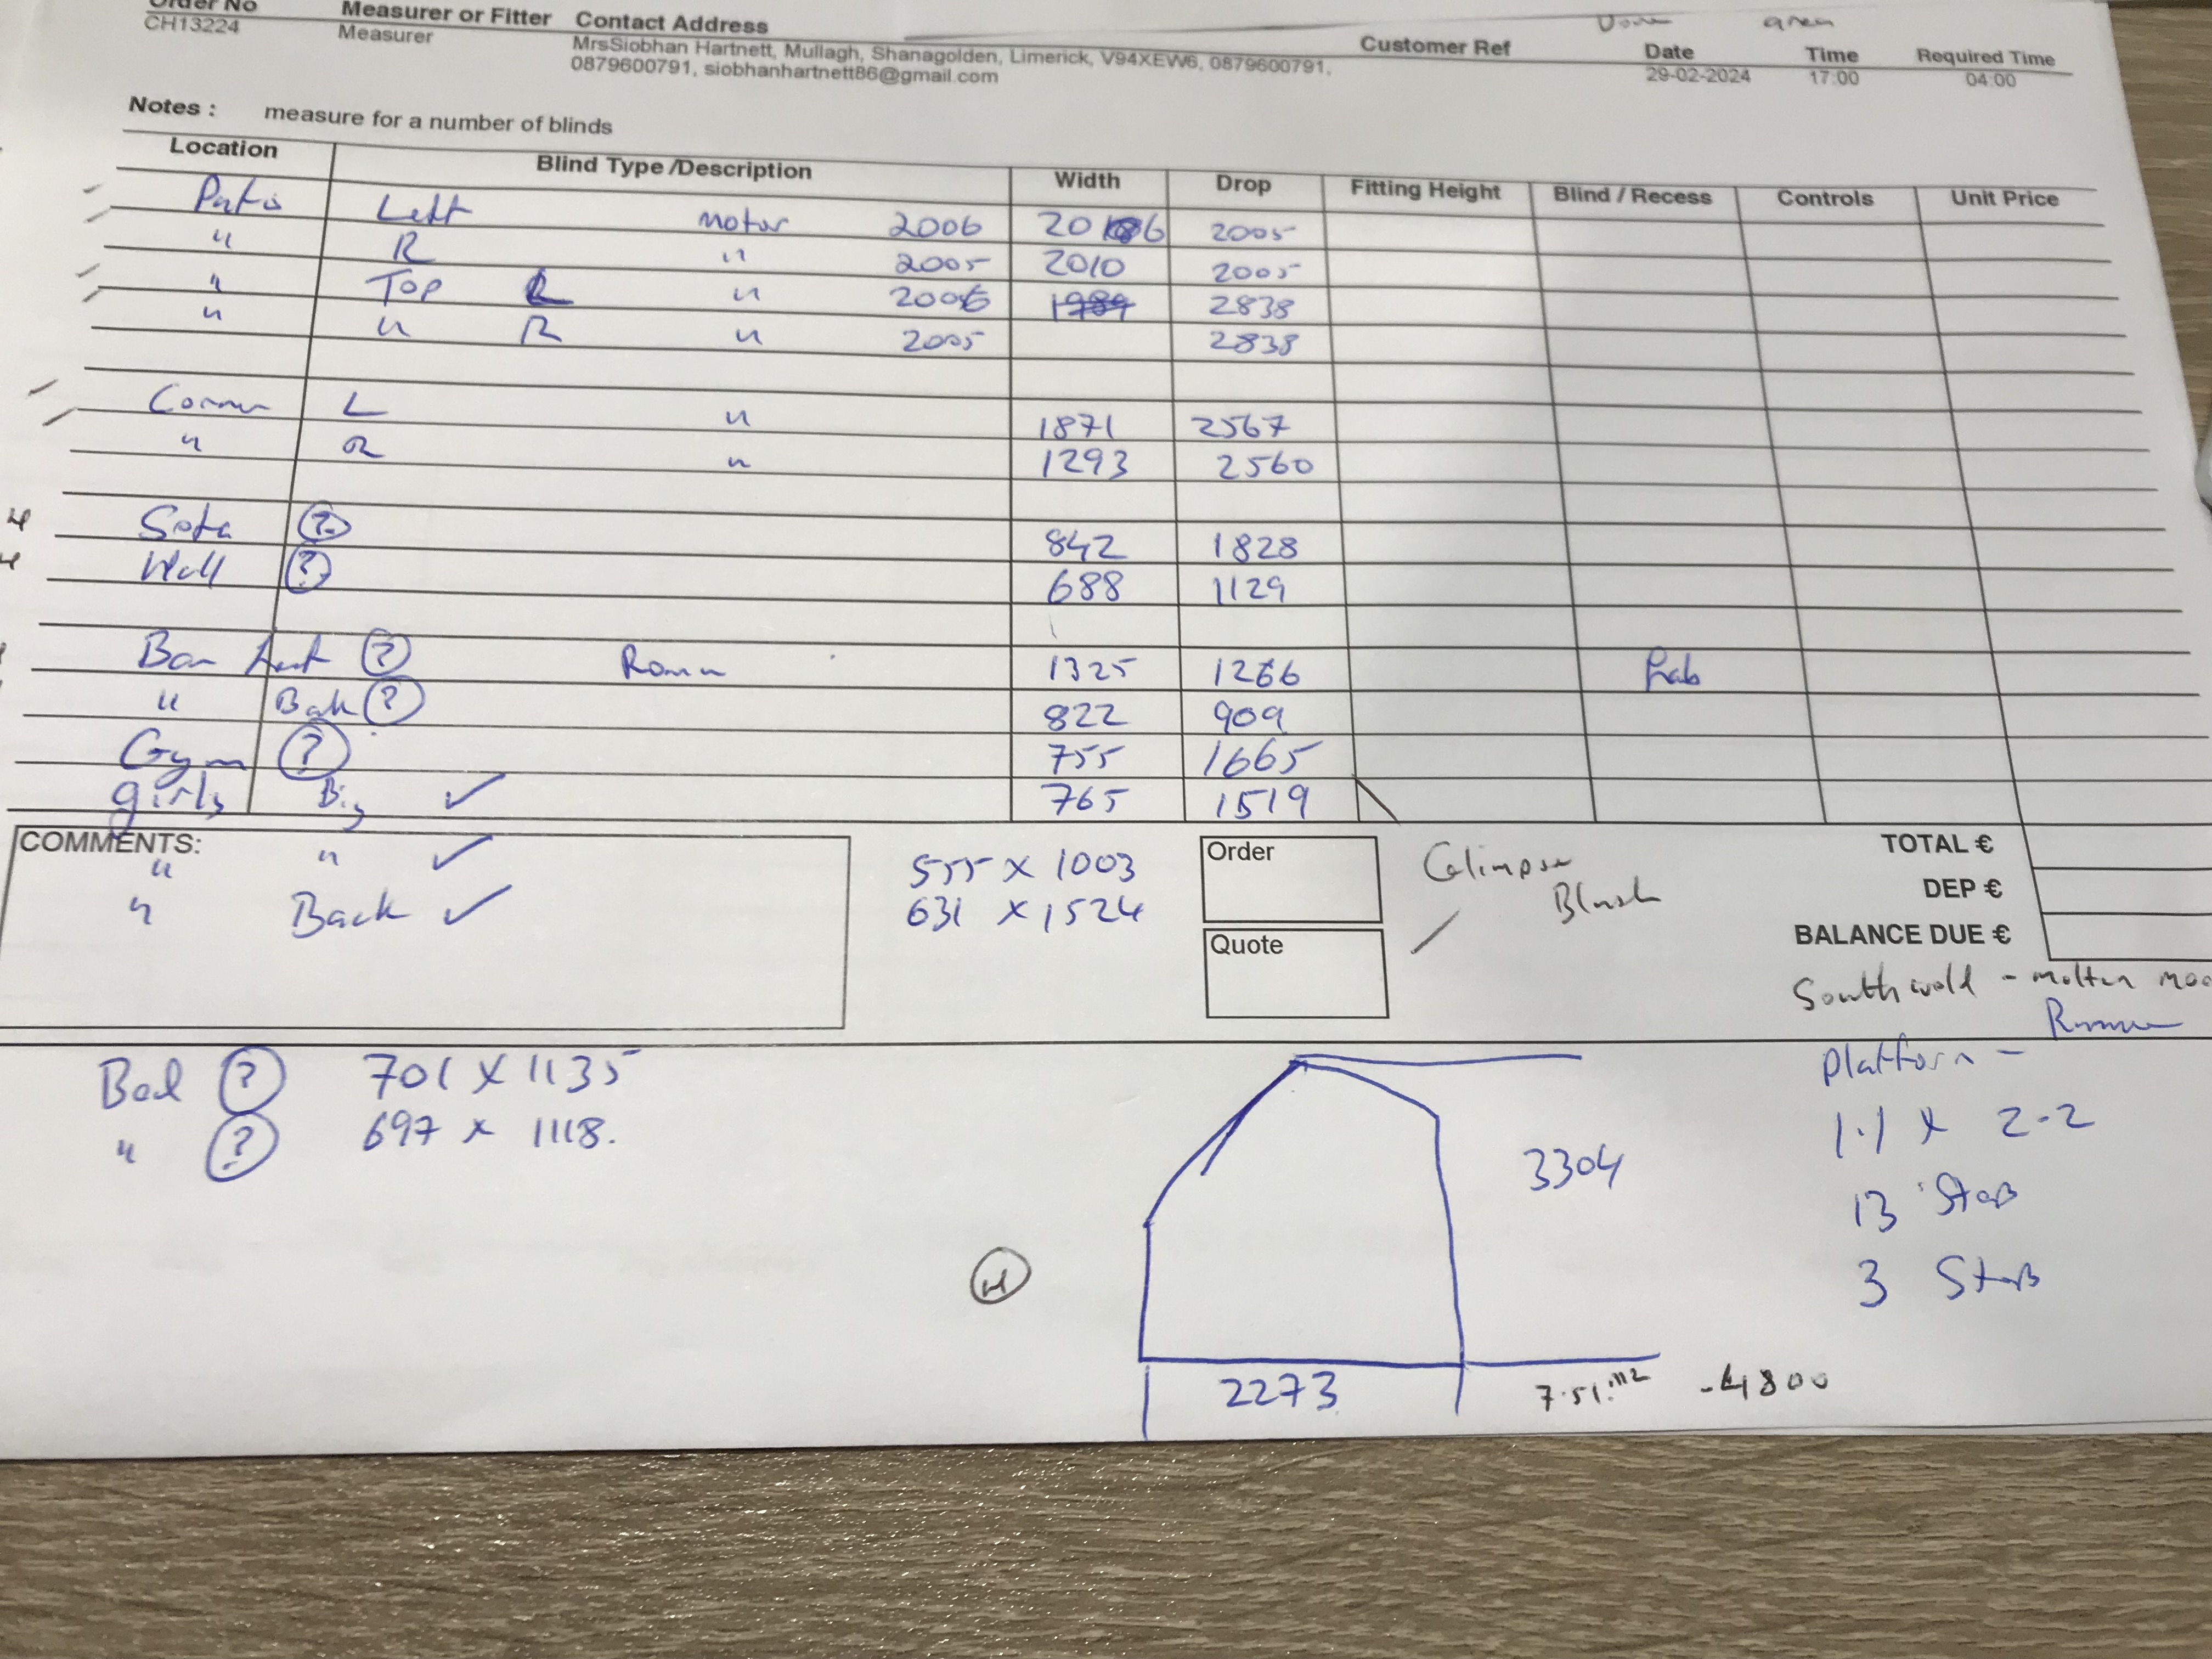 Order No Measurer or Fitter Contact Address Customer Ref Date Time Required Time
area
CH13224 Measurer MrsSiobhan Hartnett, Mullagh, Shanagolden, Limerick, V94XEW6, 0879600791, 29-02-2024 17:00 04:00
0879600791, siobhanhartnett86@gmail.com
Notes : measure for a number of blinds
Location Blind Type /Description Width Drop Fitting Height Blind / Recess Controls Unit Price
Patio Left motor 2006 2005
" R " 2005 2010 2005
" Top L " 2006 1989 2838
" " R " 2005 2838
Corner L " 1871 2567
" R " 1293 2560
842 1828
Wall ? 688 1129
? Roman 1325 1266 Fab
" Bak ? 822 909
Gym ? 755 1665
girls Big ✓ 765 1519
COMMENTS:
" " ✓ 555 x 1003
" Back ✓ 631 x 1524
Order
Quote
Glimpse
Blush
TOTAL €
DEP €
BALANCE DUE €
Southwold - molten
Bed ? 701 x 1135
" ? 697 x 1118.
Platform -
1.1 x 2-2
13
3
3304
H
2273 7.51 -4800